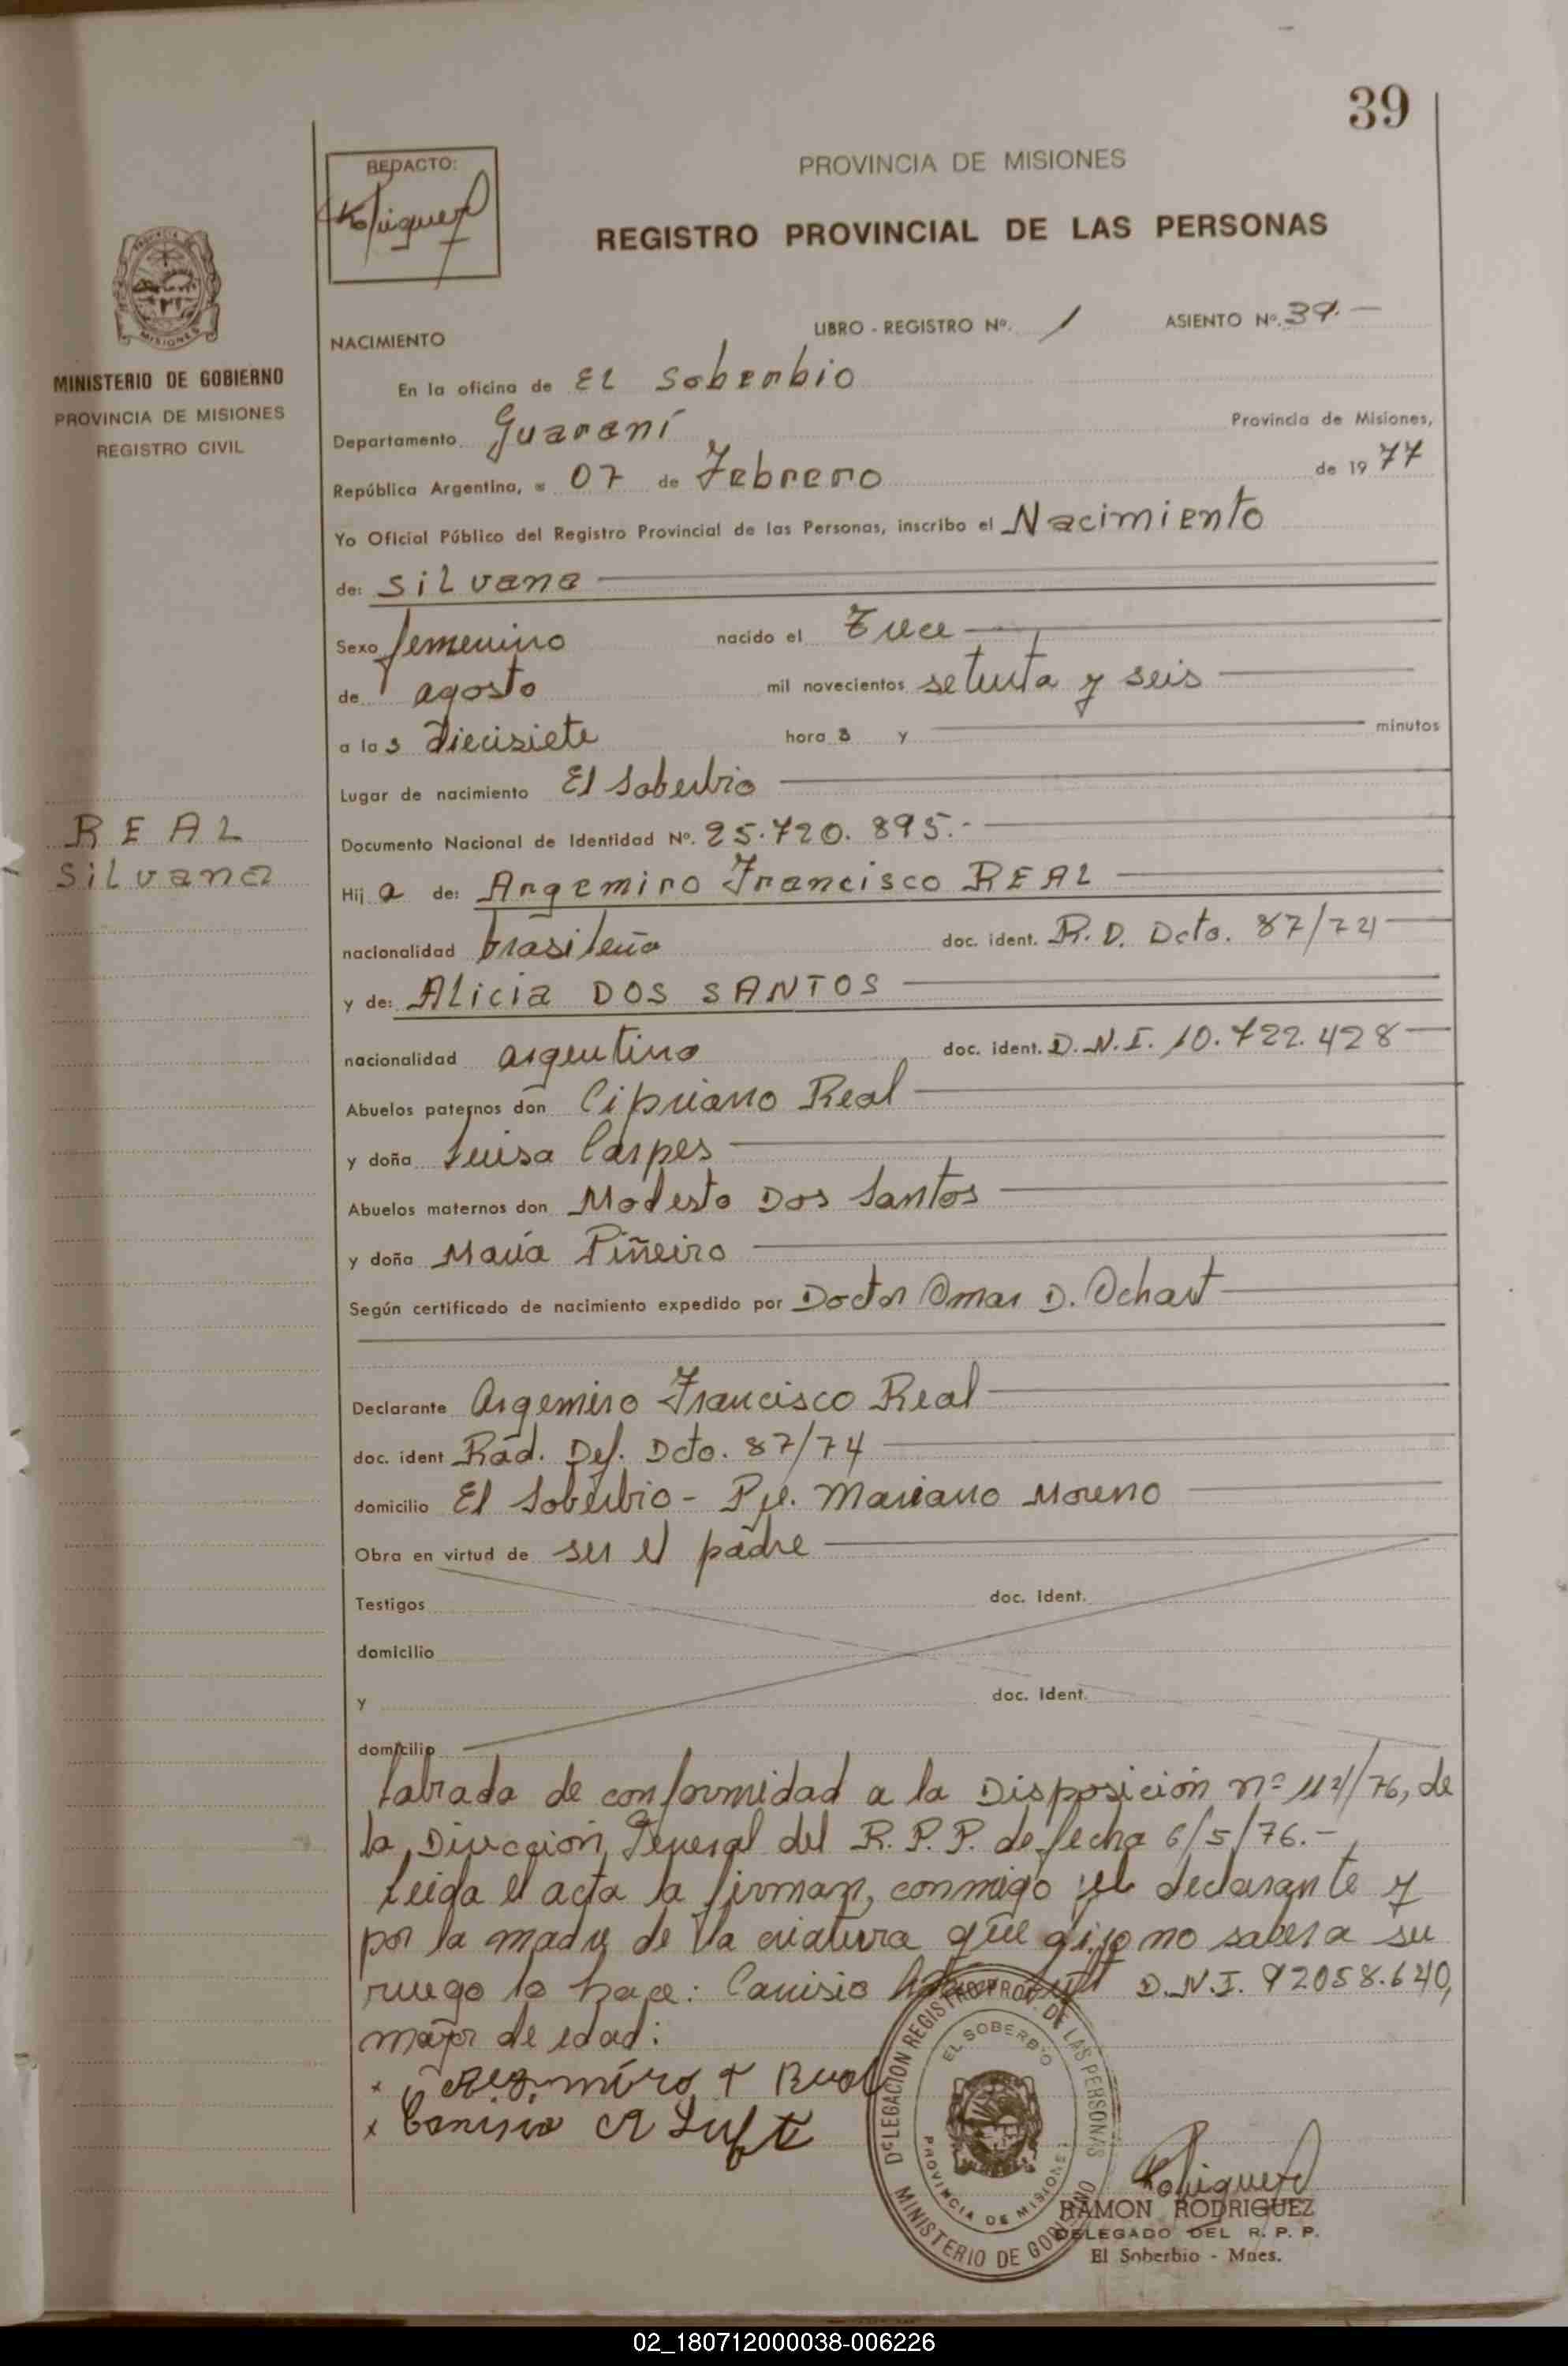 39
REDACTO:
PROVINCIA DE MISIONES
REGISTRO PROVINCIAL DE LAS PERSONAS
MISIONES
MINISTERIO DE GOBIERNO
PROVINCIA DE MISIONES
REGISTRO CIVIL
NACIMIENTO LIBRO - REGISTRO Nº. 1 ASIENTO Nº. 39.—
En la oficina de EL Soberbio
Departamento Guaraní Provincia de Misiones,
República Argentina, a 07 de Febrero de 1977
Yo Oficial Público del Registro Provincial de las Personas, inscribo el Nacimiento
de: Silvana
Sexo femenino nacido el Trece
de agosto mil novecientos setenta y seis
a las diecisiete horas y minutos
Lugar de nacimiento El Soberbio
REAL
Silvana
Documento Nacional de Identidad Nº. 25.720.895.-
Hija de: Argemiro Francisco REAL
nacionalidad brasileña doc. ident. R. D. Dcto. 87/74
y de: Alicia DOS SANTOS
nacionalidad argentina doc. ident. D.N.I. 10.722.428
Abuelos paternos don Cipriano Real
y doña Luisa Carpes
Abuelos maternos don Modesto Dos Santos
y doña María Piñeiro
Según certificado de nacimiento expedido por Doctor Omar D. Ochart
Declarante Argemiro Francisco Real
doc. ident Rad. Def. Dcto. 87/74
domicilio El Soberbio - Pje. Mariano Moreno
Obra en virtud de ser el padre
Testigos doc. Ident.
domicilio
y doc. Ident.
domicilio
Labrada de conformidad a la Disposición nº 114/76, de
la Dirección General del R. P. P. de fecha 6/5/76.-
Leída el acta la firman, conmigo el declarante y
por la madre de la criatura que dijo no saber a su
ruego lo hace: Canisio D.N.I. 92058.640,
mayor de edad:
x Argemiro F Real
x Canisio A Luft
DELEGACION REGISTRO PROV. DE LAS PERSONAS
EL SOBERBIO
PROVINCIA DE MISIONES
MINISTERIO DE GOBIERNO
RAMON RODRIGUEZ
DELEGADO DEL R. P. P.
El Soberbio - Mnes.
02_180712000038-006226